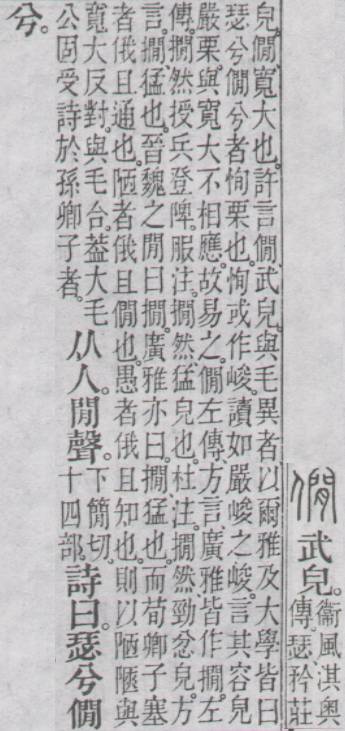 僩 武皃。衞風淇奧
傳。瑟、矜莊
皃。僩、寬大也。許言僩、武皃。與毛異者、以爾雅及大學皆曰
瑟兮僩兮者恂栗也。恂或作峻。讀如嚴峻之峻。言其容皃
嚴栗。與寬大不相應。故易之。僩左傳方言廣雅皆作撊。左
傳。撊然授兵登陴。服注。撊然、猛皃也。杜注。撊然、勁忿皃。方
言。撊、猛也。晉魏之閒曰撊。廣雅亦曰。撊、猛也。而荀卿子塞
者俄且通也。陋者俄且僩也。愚者俄且知也。則以陋陿與
寬大反對。與毛合。葢大毛
公固受詩於孫卿子者。
从人。閒聲。下簡切。
十四部。
詩曰。瑟兮僩
兮。